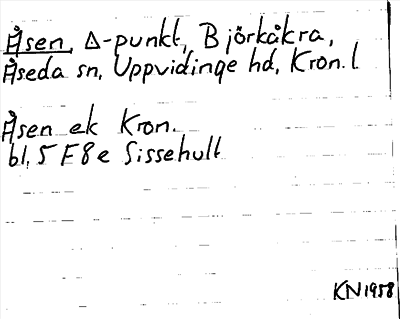 Åsen, Δ-punkt, Björkåkra,
Åseda sn, Uppvidinge hd, Kron. l
Åsen ek Kron.
bl, 5 F8e Sissehult
KN 1958